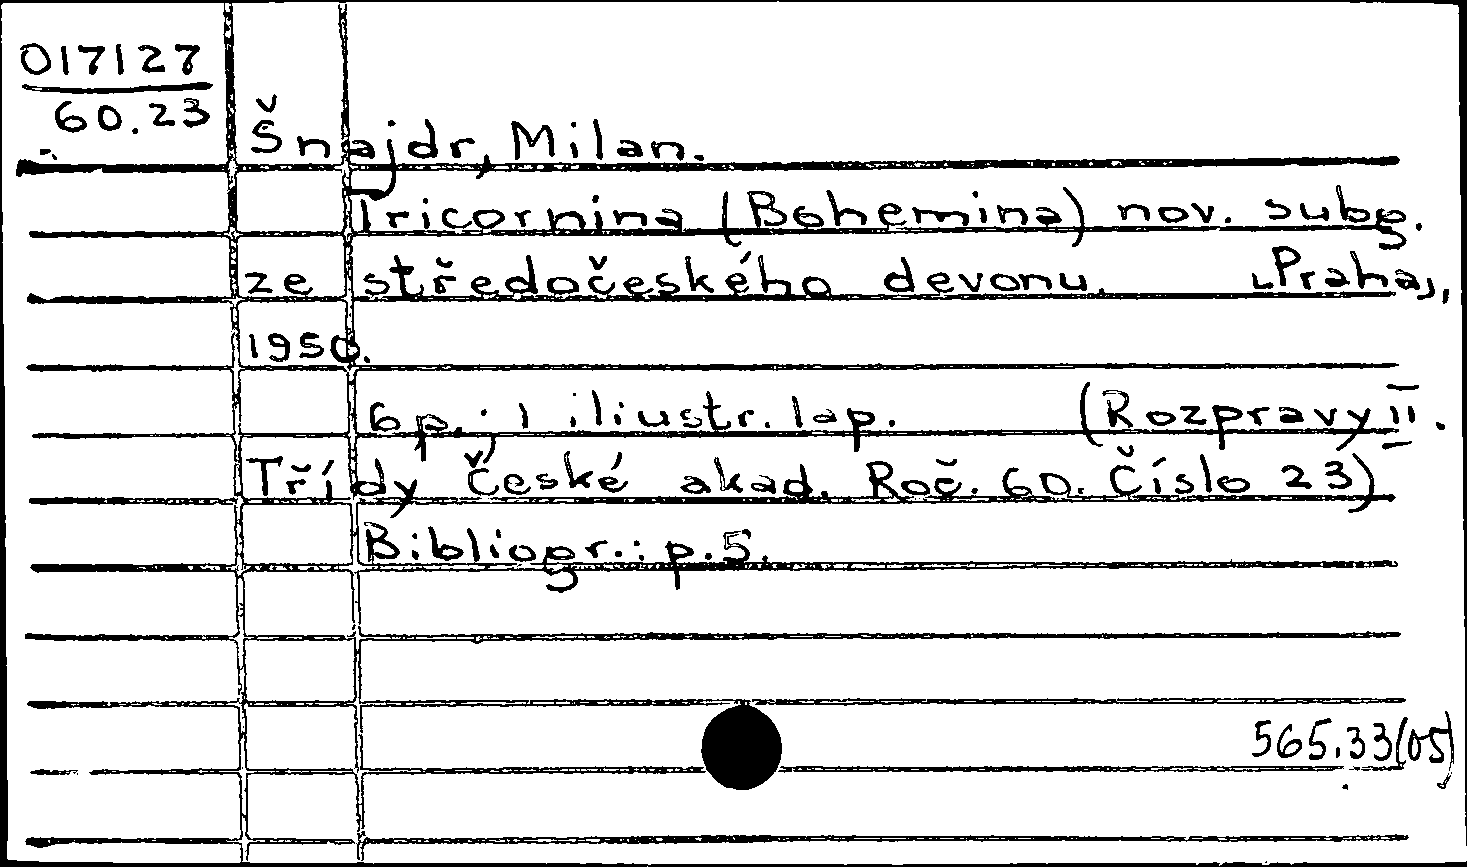 017127
60.23
Šnajdr, Milan.
Tricornina (Bohemina) nov. subg.
ze středočeského devonu. ⌞Praha⌟,
1950.
6 p.; 1 iliustr. lap. (Rozpravy II.
Třídy České akad. Roč. 60. Číslo 23)
Bibliogr.: p. 5.
565.33(05)